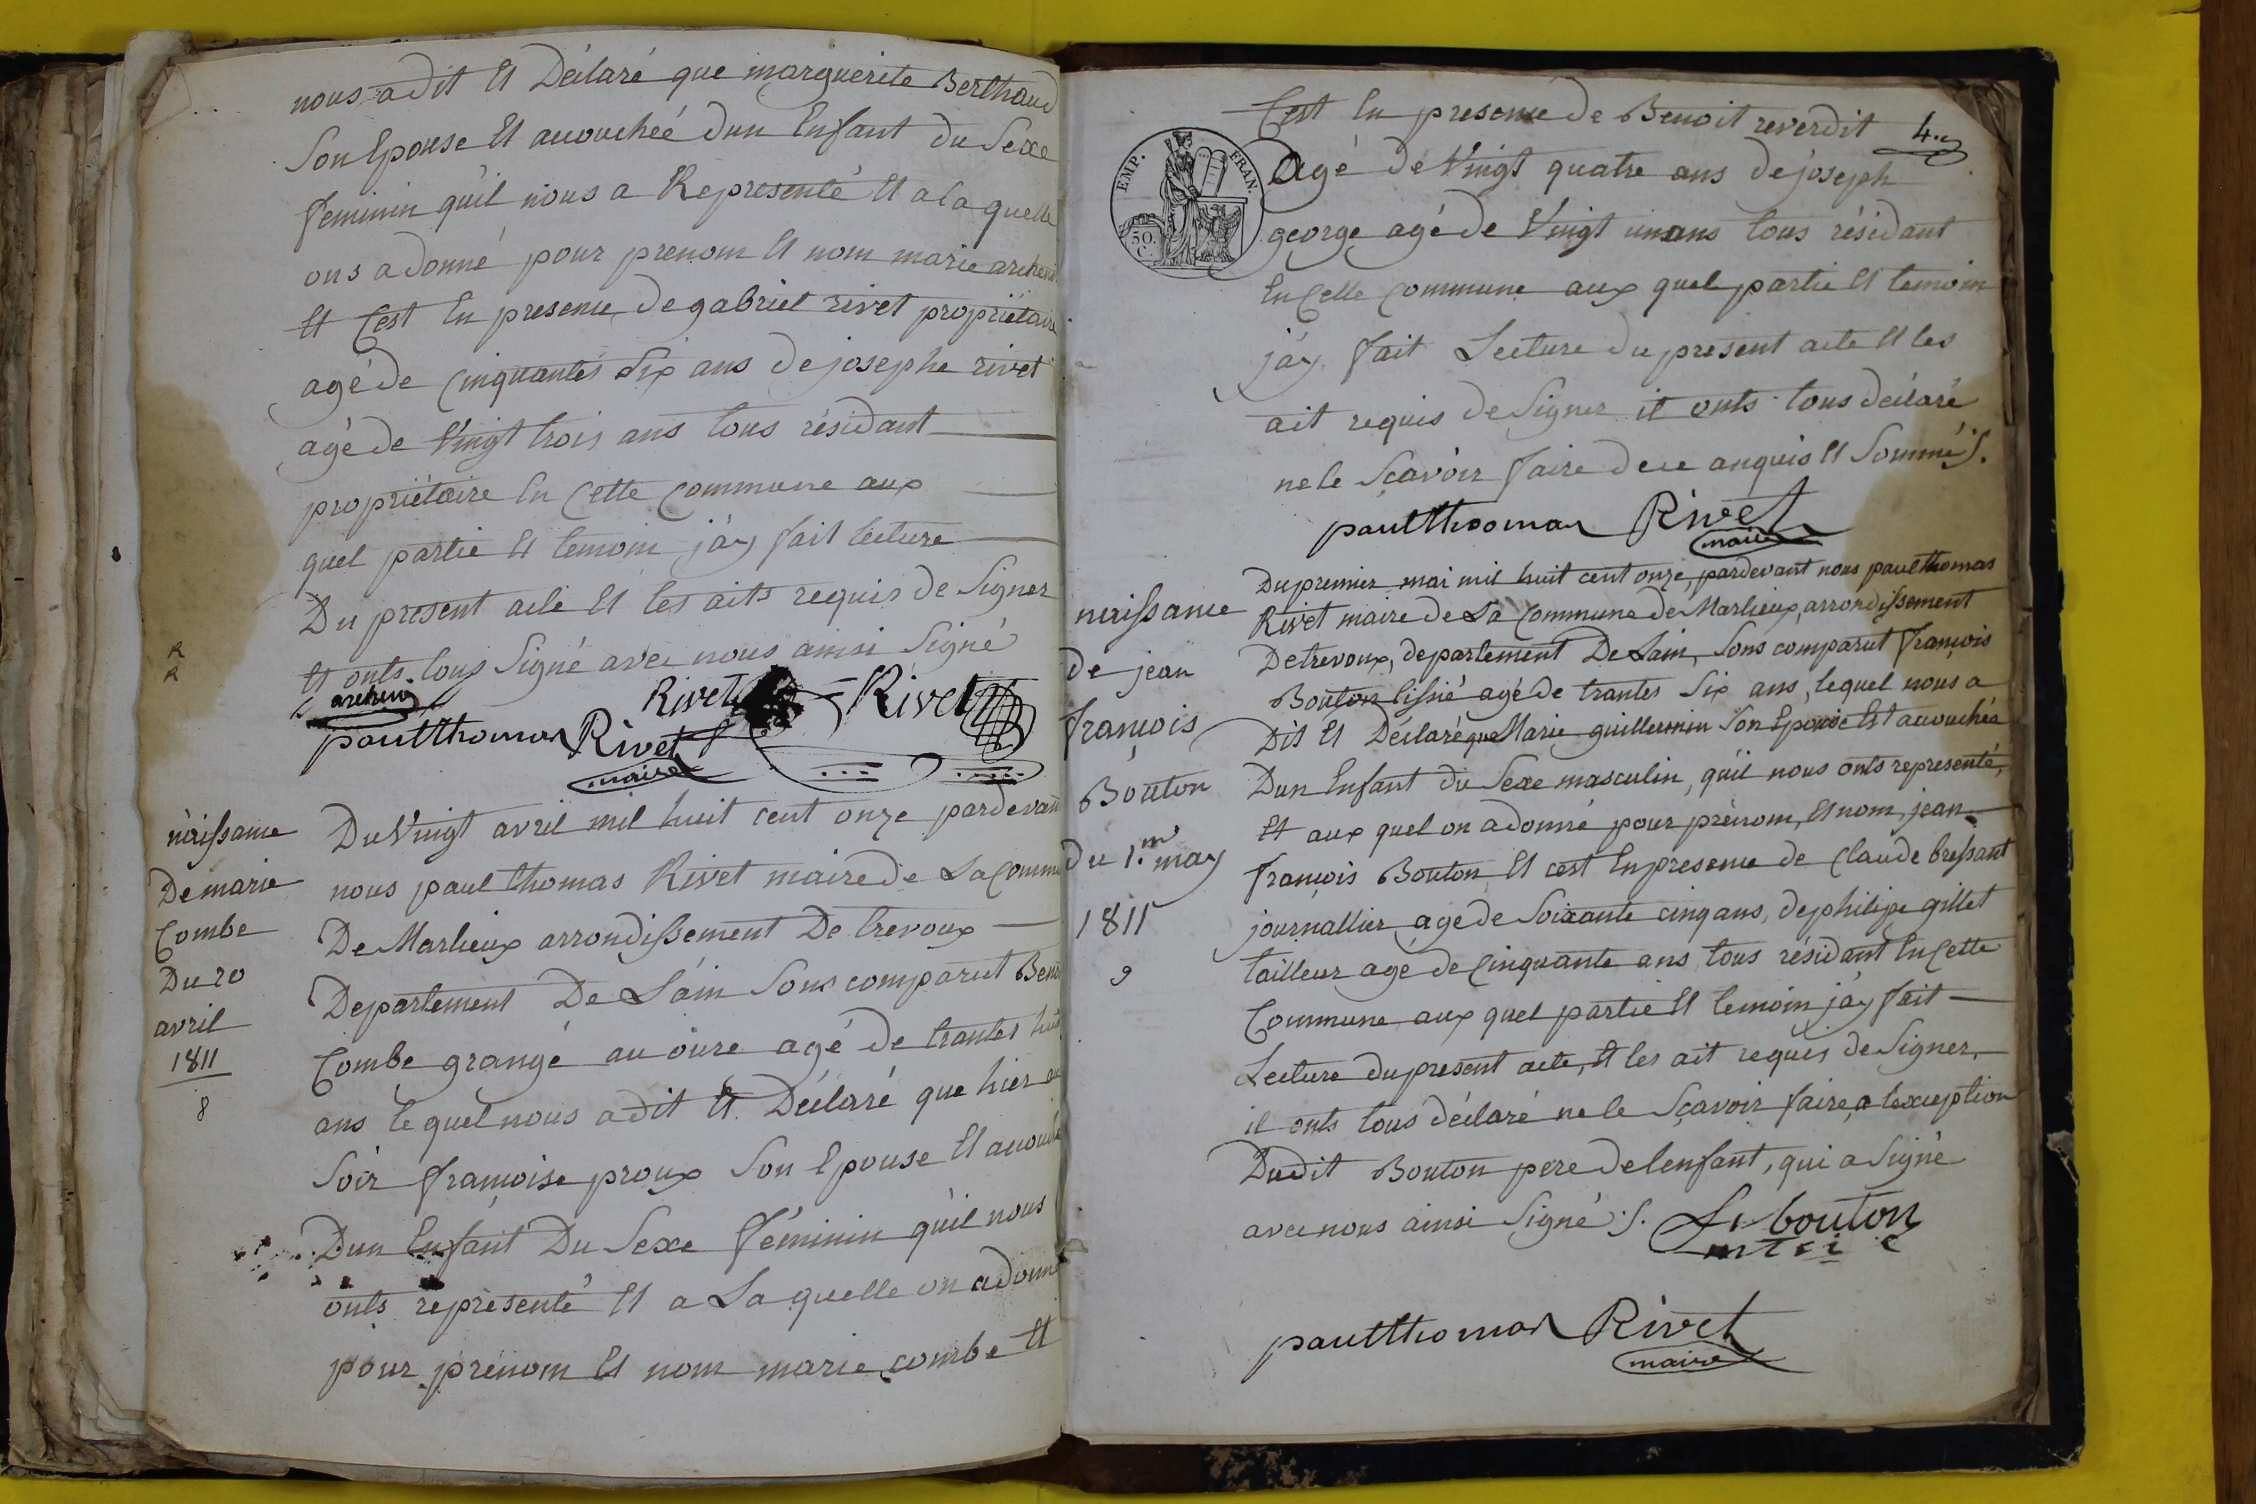 nous a dit Et Déclaré que marguerite Berthaud
Son Epouse Et accouchéé dun Enfant du Séxe
feminin qu'il nous a Representé Et a la quelle
ons a donné pour prenom Et nom marie
Et C'est En presence de gabriel rivet propriètaire
agé de Cinquantes Six ans de josephe rivet
agé de Vingt trois ans tous résidant
propriètaire En Cette Commune aux
quel partie Et temoin j'ày fait lecture
Du present acte Et les aits requis de Signer
Et onts tous Signé avec nous ainsi Signé
Rivet Rivet
paul Thomas Rivet
maire
R
R
naissance
De marie
Combe
Du 20
avril
1811
8
Du Vingt avril mil huit cent onze pardevant
nous paul thomas Rivet maire de La Commu
De Marlieux arrondissement De trevoux
Departement De L'ain Sons comparut Beno
Combe grangé au oure agé de trantes huit
ans le quel nous a dit Et Déclaré que hier au
Soir françoise proux Son Epouse Et accouché
Dun Enfant Du Sexe Féminin qu'il nous
onts representé Et a La quelle on a donné
pour prénom Et nom marie combe Et
4.e
C'est En presence de Benoit reverdit
EMP. FRAN.
50.
C.
Agé de Vingt quatre ans de joseph
george agé de Vingt un ans tous résidant
En Cette Commune aux quel partie Et temoin
j'ày fait Lecture du present acte Et les
ait requis de Signer il onts tous déclaré
ne le Sçavoir faire de ce anquis Et Sommés.
paul thoomas Rivet
maire
naissance
de jean
françois
Bouton
du 1.m may
1811
9
Du premier mai mil huit cent onze, pardevant nous paul thomas
Rivet maire de La Commune de Marlieux, arrondissement
De trevoux, departement De Lain, Sons comparut françois
Bouton tissié agé de trantes Six ans, lequel nous a
Dit Et Déclaré que Marie guillermin Son Epouse Est accouchée
Dun Enfant du Sexe masculin, qu'il nous onts representé,
Et aux quel on a donné pour prénom, Et nom, jean
françois Bouton Et cest En presence de Claude bressant
journallier agé de Soixante cinq ans, de philipe gillet
tailleur agé de Cinquante ans tous résidant En Cette
Commune aux quel partie Et temoin j'ày fait
Lecture du present acte, Et les ait requis de Signer,
il onts tous déclaré ne le Sçavoir faire, a lexception
Dudit Bouton pere de lenfant, qui a Signé
avec nous ainsi Signé S. bouton
paul thomas Rivet
maire